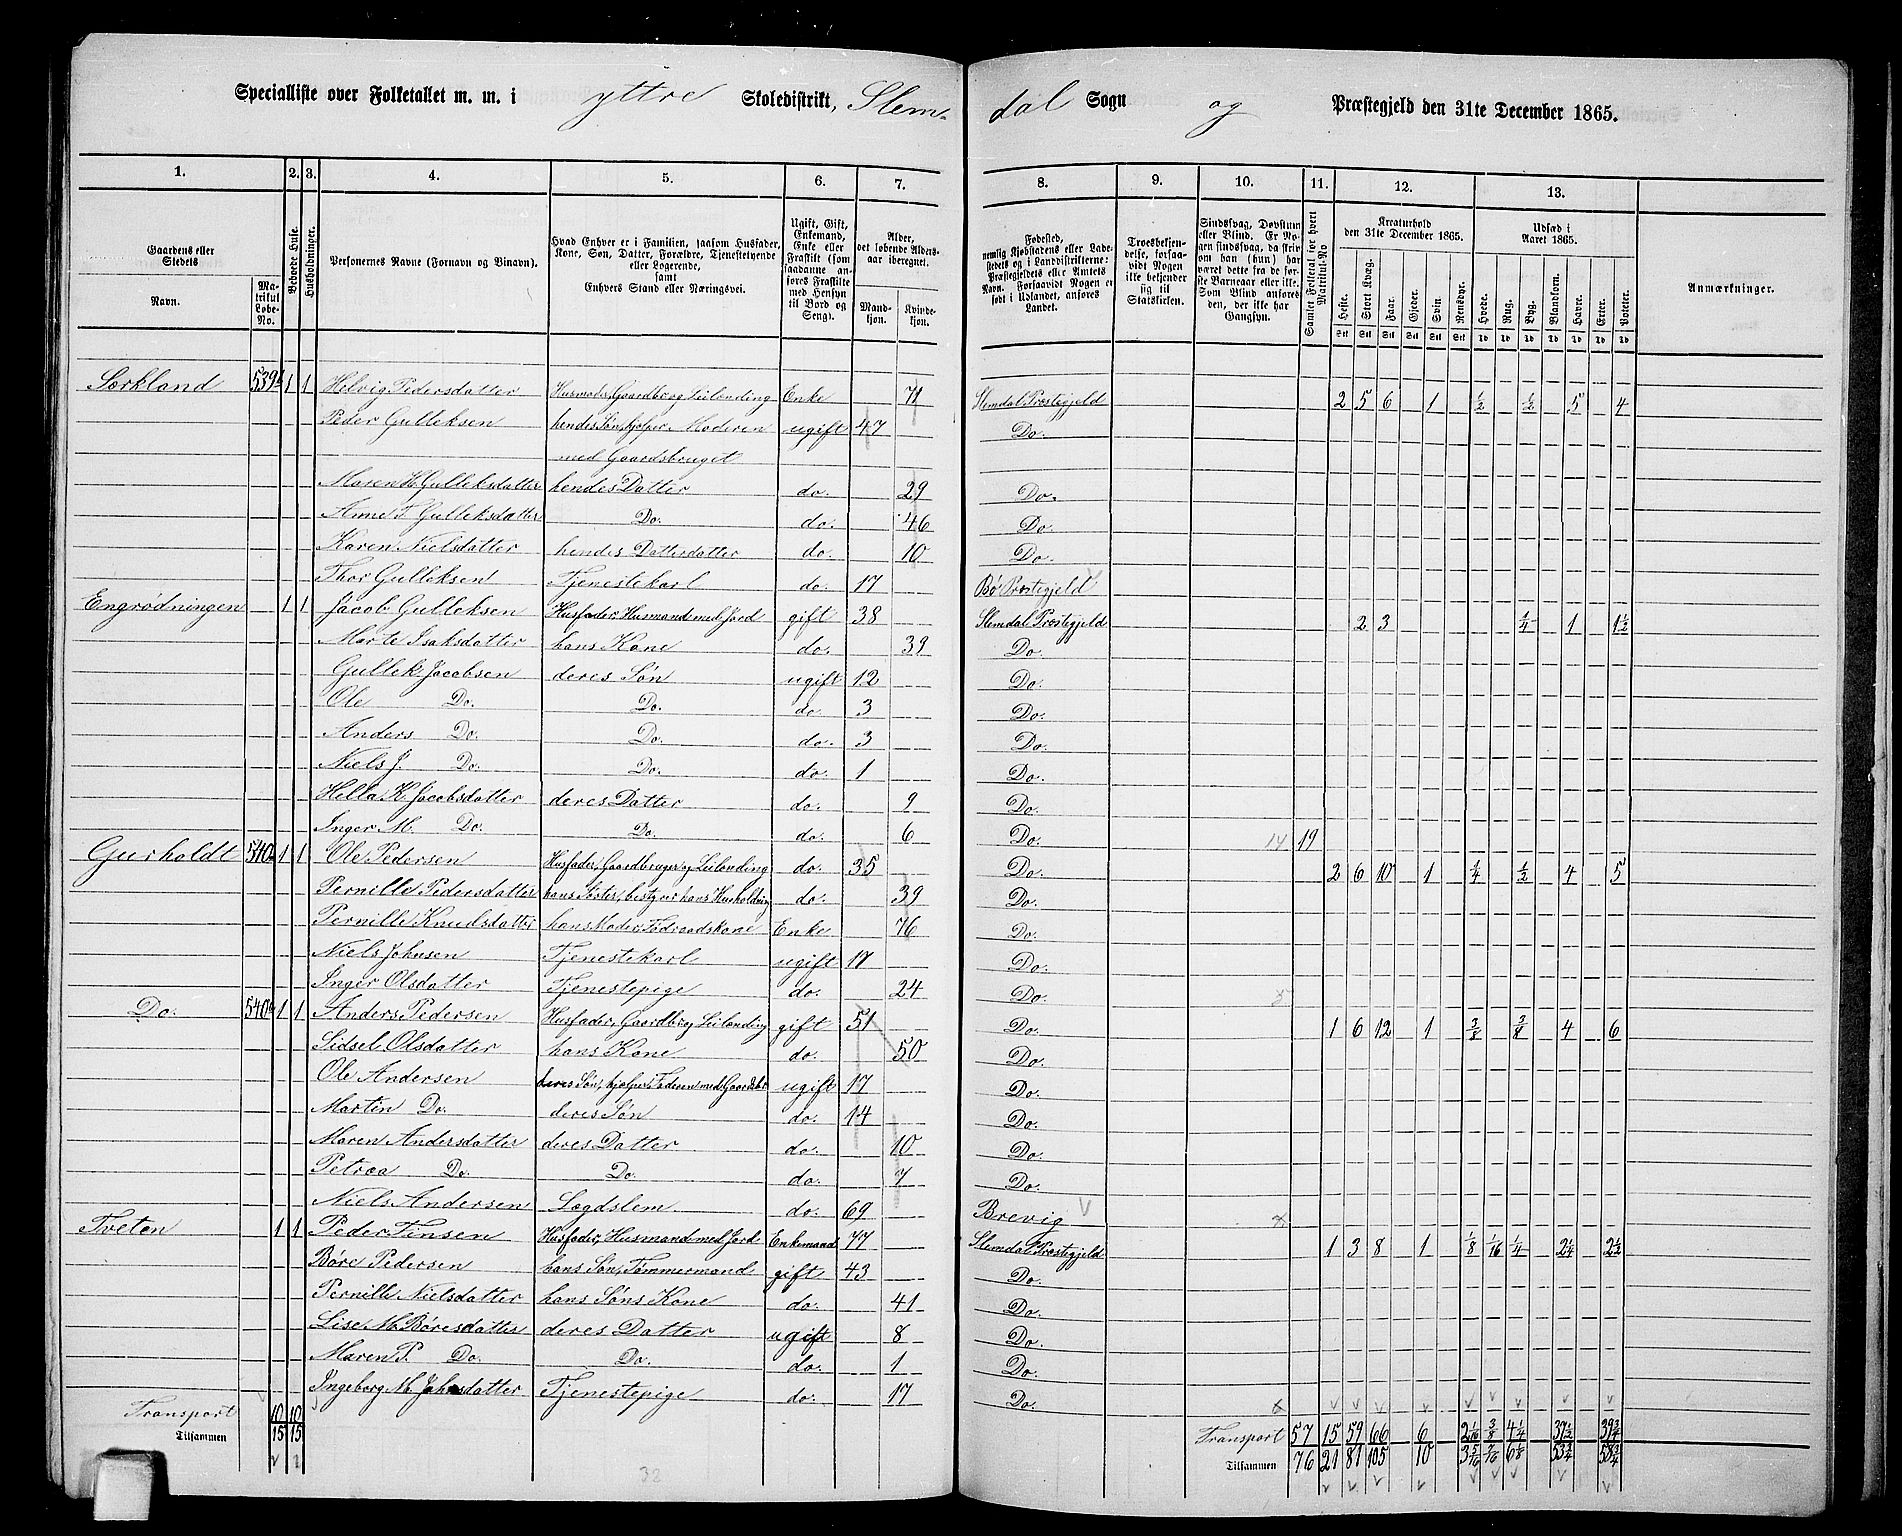 Specialliste over Folketallet m. m. i yttre Skoledistrikt, Slemdal Sogn og Præstegjeld den 31te December 1865.
1. 2. 3. 4. 5. 6. 7. 8. 9. 10. 11. 12. 13.
Gaardens eller Stedets
Navn.
Matrikul Løbe-No.
Beboede Huse.
Husholdninger.
Personernes Navne (Fornavn og Tilnavn).
Hvad Enhver er i Familien, saasom Husfader, Kone, Søn, Datter, Forældre, Tjenestetyende eller Logerende, samt Enhvers Stand eller Næringsvei.
Ugift, Gift, Enkemand, Enke eller Fraskilt (som saadanne anføres Fraskilte med Hensyn til Bord og Seng).
Alder, det løbende Alders-aar iberegnet.
Mand-kjøn.
Kvinde-kjøn.
Fødested, nemlig Kjøbstadens eller Ladestedets og i Landdistrikterne: Præstegjeldets eller Amtets Navn. Forsaavidt Nogen er født i Udlandet, anføres Landet.
Troesbekjendelse, forsaavidt Nogen ikke bekjender sig til Statskirken.
Sindssvag, Døvstum eller Blind. Er Nogen sindssvag, da skrives om han (hun) har været dette fra de første Barneaar eller ikke. Som Blind anføres den, der ikke har Gangsyn.
Samlet Folketal for hvert Matrikul-No
Kreaturhold den 31te December 1865.
Heste. Stort Kvæg. Faar. Gjeder. Svin. Rensdyr.
Udsæd i Aaret 1865.
Hvede. Rug. Byg. Blandkorn. Havre. Erter. Poteter.
Anmærkninger.
Sørkland 539a 1 1 Helvig Pedersdatter Husmoder, Gaardbr og Leilænding Enke 71 Slemdal Præstegjeld 2 5 6 1 1/2 1/2 5 4
Peder Gulleksen hendes Søn, hjelper Moderen ugift 47 Do.
med Gaardsbruget
Maren H. Gulleksdatter hendes Datter do. 29 Do.
Anne T. Gulleksdatter Do. do. 46 Do.
Karen Nielsdatter hendes Datterdatter do. 10 Do.
Thor Gulleksen Tjenestekarl do. 17 Bø Præstegjeld
Engrødningen 1 1 Jacob Gulleksen Husfader, Husmand med Jord gift 38 Slemdal Præstegjeld 2 3 1/4 1 1 1/2
Marte Isaksdatter hans Kone do. 39 Do.
Gullek Jacobsen deres Søn ugift 12 Do.
Ole Do. Do. do. 3 Do.
Anders Do. Do. do. 3 Do.
Niels J. Do. Do. do. 1 Do.
Hella K. Jacobsdatter deres Datter do. 9 Do.
Inger M. Do. Do. do. 6 Do. 14 19
Gurholdt 540a 1 1 Ole Pedersen Husfader, Gaardbruger og Leilænding do. 35 Do. 2 6 10 1 1/4 1/2 4 5
Pernille Pedersdatter hans Søster, bestyrer hans Husholdning do. 39 Do.
Pernille Knudsdatter hans Moder, Føderaadskone Enke 76 Do.
Niels Johnsen Tjenestekarl ugift 17 Do.
Inger Olsdatter Tjenestepige do. 24 Do. 5
Do. 540b 1 1 Anders Pedersen Husfader, Gaardbr og Leilænding gift 51 Do. 1 6 12 1 3/8 3/8 4 6
Sidsel Olsdatter hans Kone do. 50 Do.
Ole Andersen deres Søn, hjelper Faderen med Gaardsbr ugift 17 Do.
Martin Do. deres Søn do. 14 Do.
Maren Andersdatter deres Datter do. 10 Do.
Petrea Do. Do. do. 7 Do.
Niels Andersen Lægdslem do. 69 Brevig
Tveten 1 1 Peder Finsen Husfader, Husmand med Jord Enkemand 77 Slemdal Præstegjeld 1 3 8 1 1/8 1/16 1/4 2 1/4 2 1/2
Børe Pedersen hans Søn, Tømmermand gift 43 Do.
Pernille Nielsdatter hans Søns Kone do. 41 Do.
Lise M. Børesdatter deres Datter ugift 8 Do.
Maren P. Do. Do. do. 1 Do.
Ingeborg M. Johnsdatter Tjenestepige do. 17 Do.
Transport 10 10 Transport 57 15 59 66 6 2 1/16 3/8 4 1/4 37 1/2 39 3/4
Tilsammen 15 15 Tilsammen 76 21 81 105 10 3 5/16 7/16 6 1/8 53 3/4 58 3/4
32